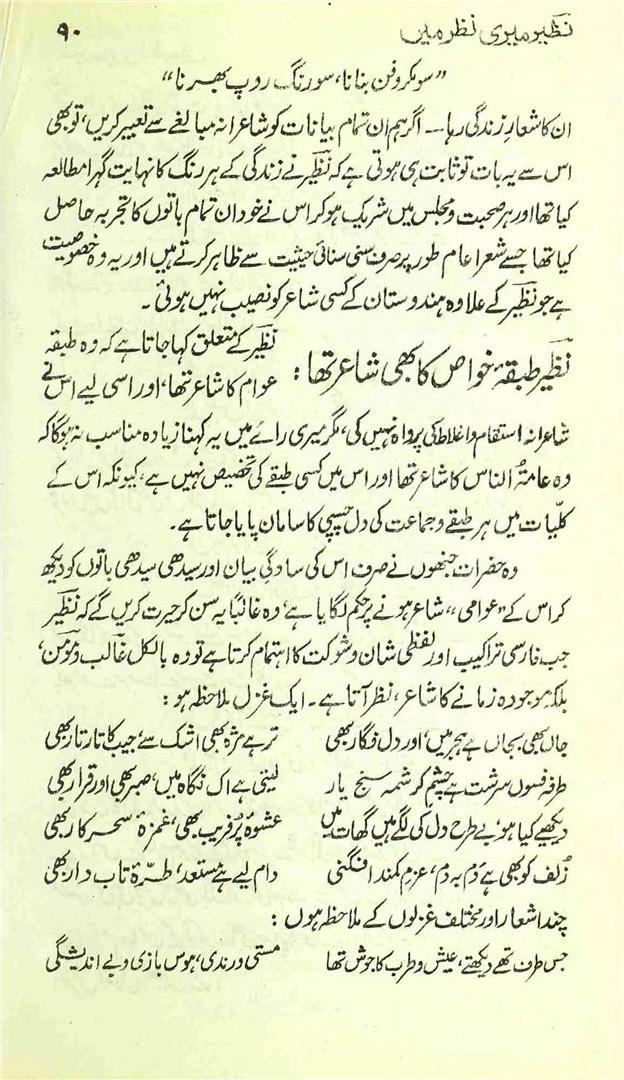 نظیر میری نظر میں ۹۰
”سو مکر و فن بنانا، سو رنگ روپ بھرنا“
ان کا شعارِ زندگی رہا — اگر ہم ان تمام بیانات کو شاعرانہ مبالغے سے تعبیر کریں، تو بھی
اس سے یہ بات تو ثابت ہی ہوتی ہے کہ نظیرؔ نے زندگی کے ہر رنگ کا نہایت گہرا مطالعہ
کیا تھا اور ہر صحبت و مجلس میں شریک ہو کر اس نے خود ان تمام باتوں کا تجربہ حاصل
کیا تھا جسے شعرا عام طور پر صرف سنی سنائی حیثیت سے ظاہر کرتے ہیں اور یہ وہ خصوصیت
ہے جو نظیرؔ کے علاوہ ہندوستان کے کسی شاعر کو نصیب نہیں ہوئی۔
نظیرؔ طبقۂ خواص کا بھی شاعر تھا: نظیرؔ کے متعلق کہا جاتا ہے کہ وہ طبقہ
عوام کا شاعر تھا، اور اسی لیے اس نے
شاعرانہ استقام و اغلاط کی پرواہ نہیں کی، مگر میری رائے میں یہ کہنا زیادہ مناسب نہ ہوگا کہ
وہ عامتہُ الناس کا شاعر تھا اور اس میں کسی طبقے کی تخصیص نہیں ہے، کیونکہ اس کے
کلّیات میں ہر طبقے و جماعت کی دل چسپی کا سامان پایا جاتا ہے۔
وہ حضرات جنھوں نے صرف اس کی سادگیِ بیان اور سیدھی سیدھی باتوں کو دیکھ
کر اس کے ”عوامی“ شاعر ہونے پر حکم لگایا ہے، وہ غالباً یہ سن کر حیرت کریں گے کہ نظیرؔ
جب فارسی تراکیب اور لفظی شان و شوکت کا اہتمام کرتا ہے تو وہ بالکل غالبؔ و مومنؔ،
بلکہ موجودہ زمانے کا شاعر، نظر آتا ہے۔ ایک غزل ملاحظہ ہو:
جاں بھی بجاں ہے ہجر میں، اور دل فگار بھی تر ہے مژہ بھی اشک سے، جیب کا تار تار بھی
طرفہ فسوں سرشت ہے چشمِ کرشمہ سنج یار لیتی ہے اک نگاہ میں، صبر بھی اور قرار بھی
دیکھیے کیا ہو، بے طرح دل کی لگے ہیں گھات میں عشوۂ پُر فریب بھی، غمزۂ سحر کار بھی
زُلف کو بھی ہے دم بہ دم، عزمِ کمند افگنی دام لیے ہے مستعد، طرّۂ تاب دار بھی
چند اشعار اور مختلف غزلوں کے ملاحظہ ہوں:
جس طرف تھے دیکھتے، عیش و طرب کا جوش تھا مستی و رندی، ہوس بازی و بے اندیشگی